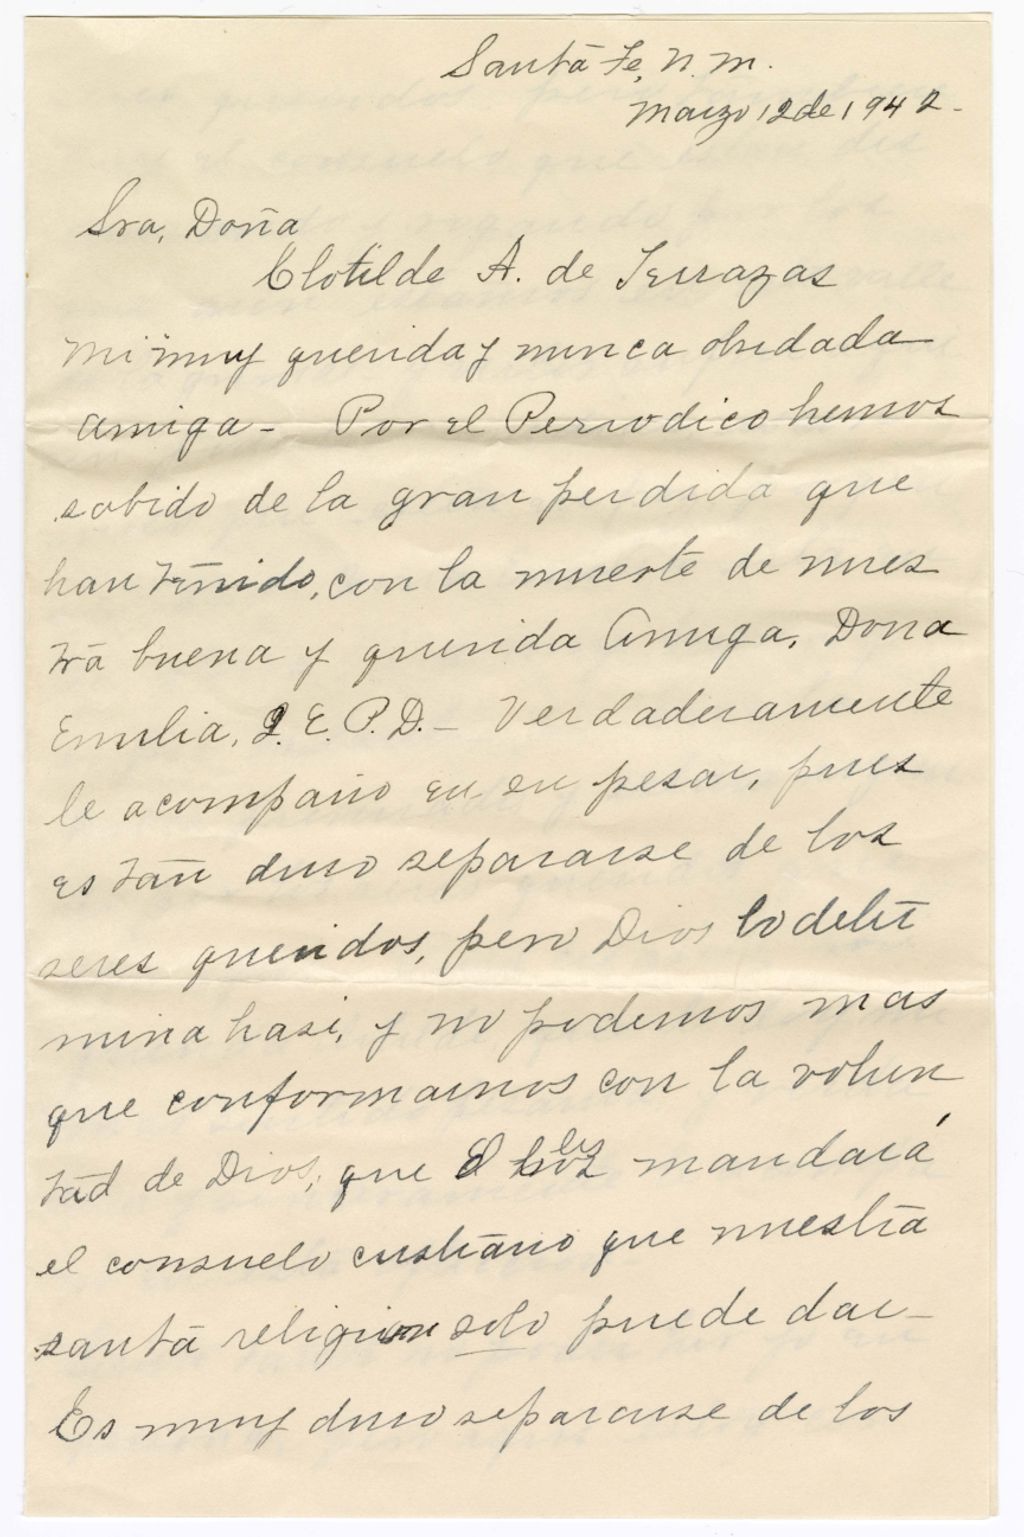 Santa Fe, N. M.
Marzo 12 de 1942-
Sra, Doña
Clotilde A. de Terrazas
Mi muy querida y nunca olvidada
amiga- Por el Periodico hemos
sabido de la gran perdida que
han tenido, con la muerte de nues
tra buena y querida Amiga, Dona
Emilia, Q. E. P. D. - Verdaderamente
le acompaño en su pesar, pues
es tan duro separarse de los
seres queridos, pero Dios lo deter
mina hasi, y no podemos mas
que conformarnos con la volun
tad de Dios, que El les mandará
el consuelo cristiano que nuestra
santa religion solo puede dar-
Es muy duro separarse de los